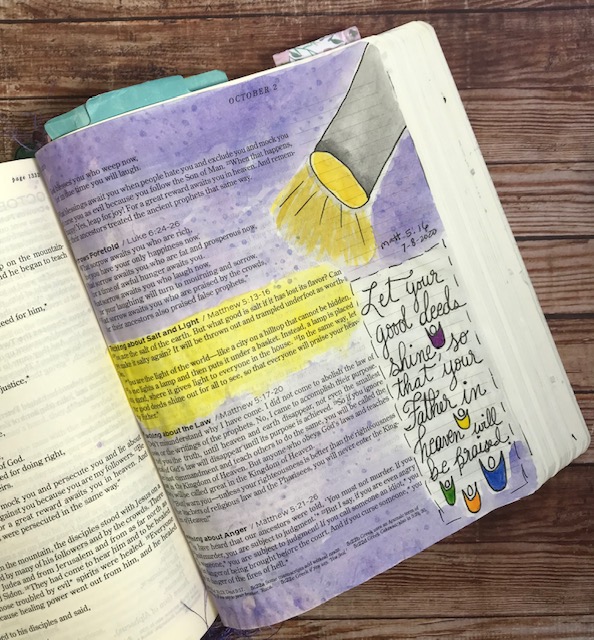 page 1332
p on the mountain-
nd he began to teach
eed for him,"
justice,"
l of God.
ed for doing right,
mock you and persecute you and lie about
against you because you are my followers.
or a great reward awaits you in heaven.
were persecuted in the same way."
on the mountain, the disciples stood with Jesus on
by many of his followers and by the crowds. There
Judea and from Jerusalem and from as far north as
Sidon. "They had come to hear him and to be healed
ose troubled by evil" spirits were healed.
because healing power went out from him, and he
ed to his disciples and said,
OCTOBER 2
you who weep now,
time you will laugh.
blessings await you when people hate you and exclude you and mock you
you as evil because you follow the Son of Man. "When that happens,
Yes, leap for joy! For a great reward awaits you in heaven. And remem-
ancestors treated the ancient prophets that same way.
Foretold / Luke 6:24-26
sorrow awaits you who are rich,
you have your only happiness now.
sorrow awaits you who are fat and prosperous now,
time of awful hunger awaits you.
sorrow awaits you who laugh now,
your laughing will turn to mourning and sorrow.
sorrow awaits you who are praised by the crowds,
their ancestors also praised false prophets."
about Salt and Light / Matthew 5:13-16
are the salt of the earth. But what good is salt if it has lost its flavor? Can
make it salty again? It will be thrown out and trampled underfoot as worth-
"You are the light of the world—like a city on a hilltop that cannot be hidden.
lights a lamp and then puts it under a basket. Instead, a lamp is placed
stand, where it gives light to everyone in the house. "In the same way, let
good deeds shine out for all to see, so that everyone will praise your heav-
Father.
about the Law / Matthew 5:17-20
misunderstand why I have come. I did not come to abolish the law of
or the writings of the prophets. No, I came to accomplish their purpose.
you the truth, until heaven and earth disappear, not even the smallest
God's law will disappear until its purpose is achieved. "So if you ignore
commandment and teach others to do the same, you will be called the
Kingdom of Heaven. But anyone who obeys God's laws and teaches
called great in the Kingdom of Heaven.
you—unless your righteousness is better than the righteousness
religious law and the Pharisees, you will never enter the King-
of Heaven!
about Anger / Matthew 5:21-26
have heard that our ancestors were told, 'You must not murder. If you
murder, you are subject to judgment.' "But I say, if you are even angry
someone, you are subject to judgment! If you call someone an idiot, you
danger of being brought before the court. And if you curse someone, you
danger of the fires of hell.
matt. 5:16
7-8-2020
Let your
good deeds
shine, so
that your
Father in
heaven will
be praised.